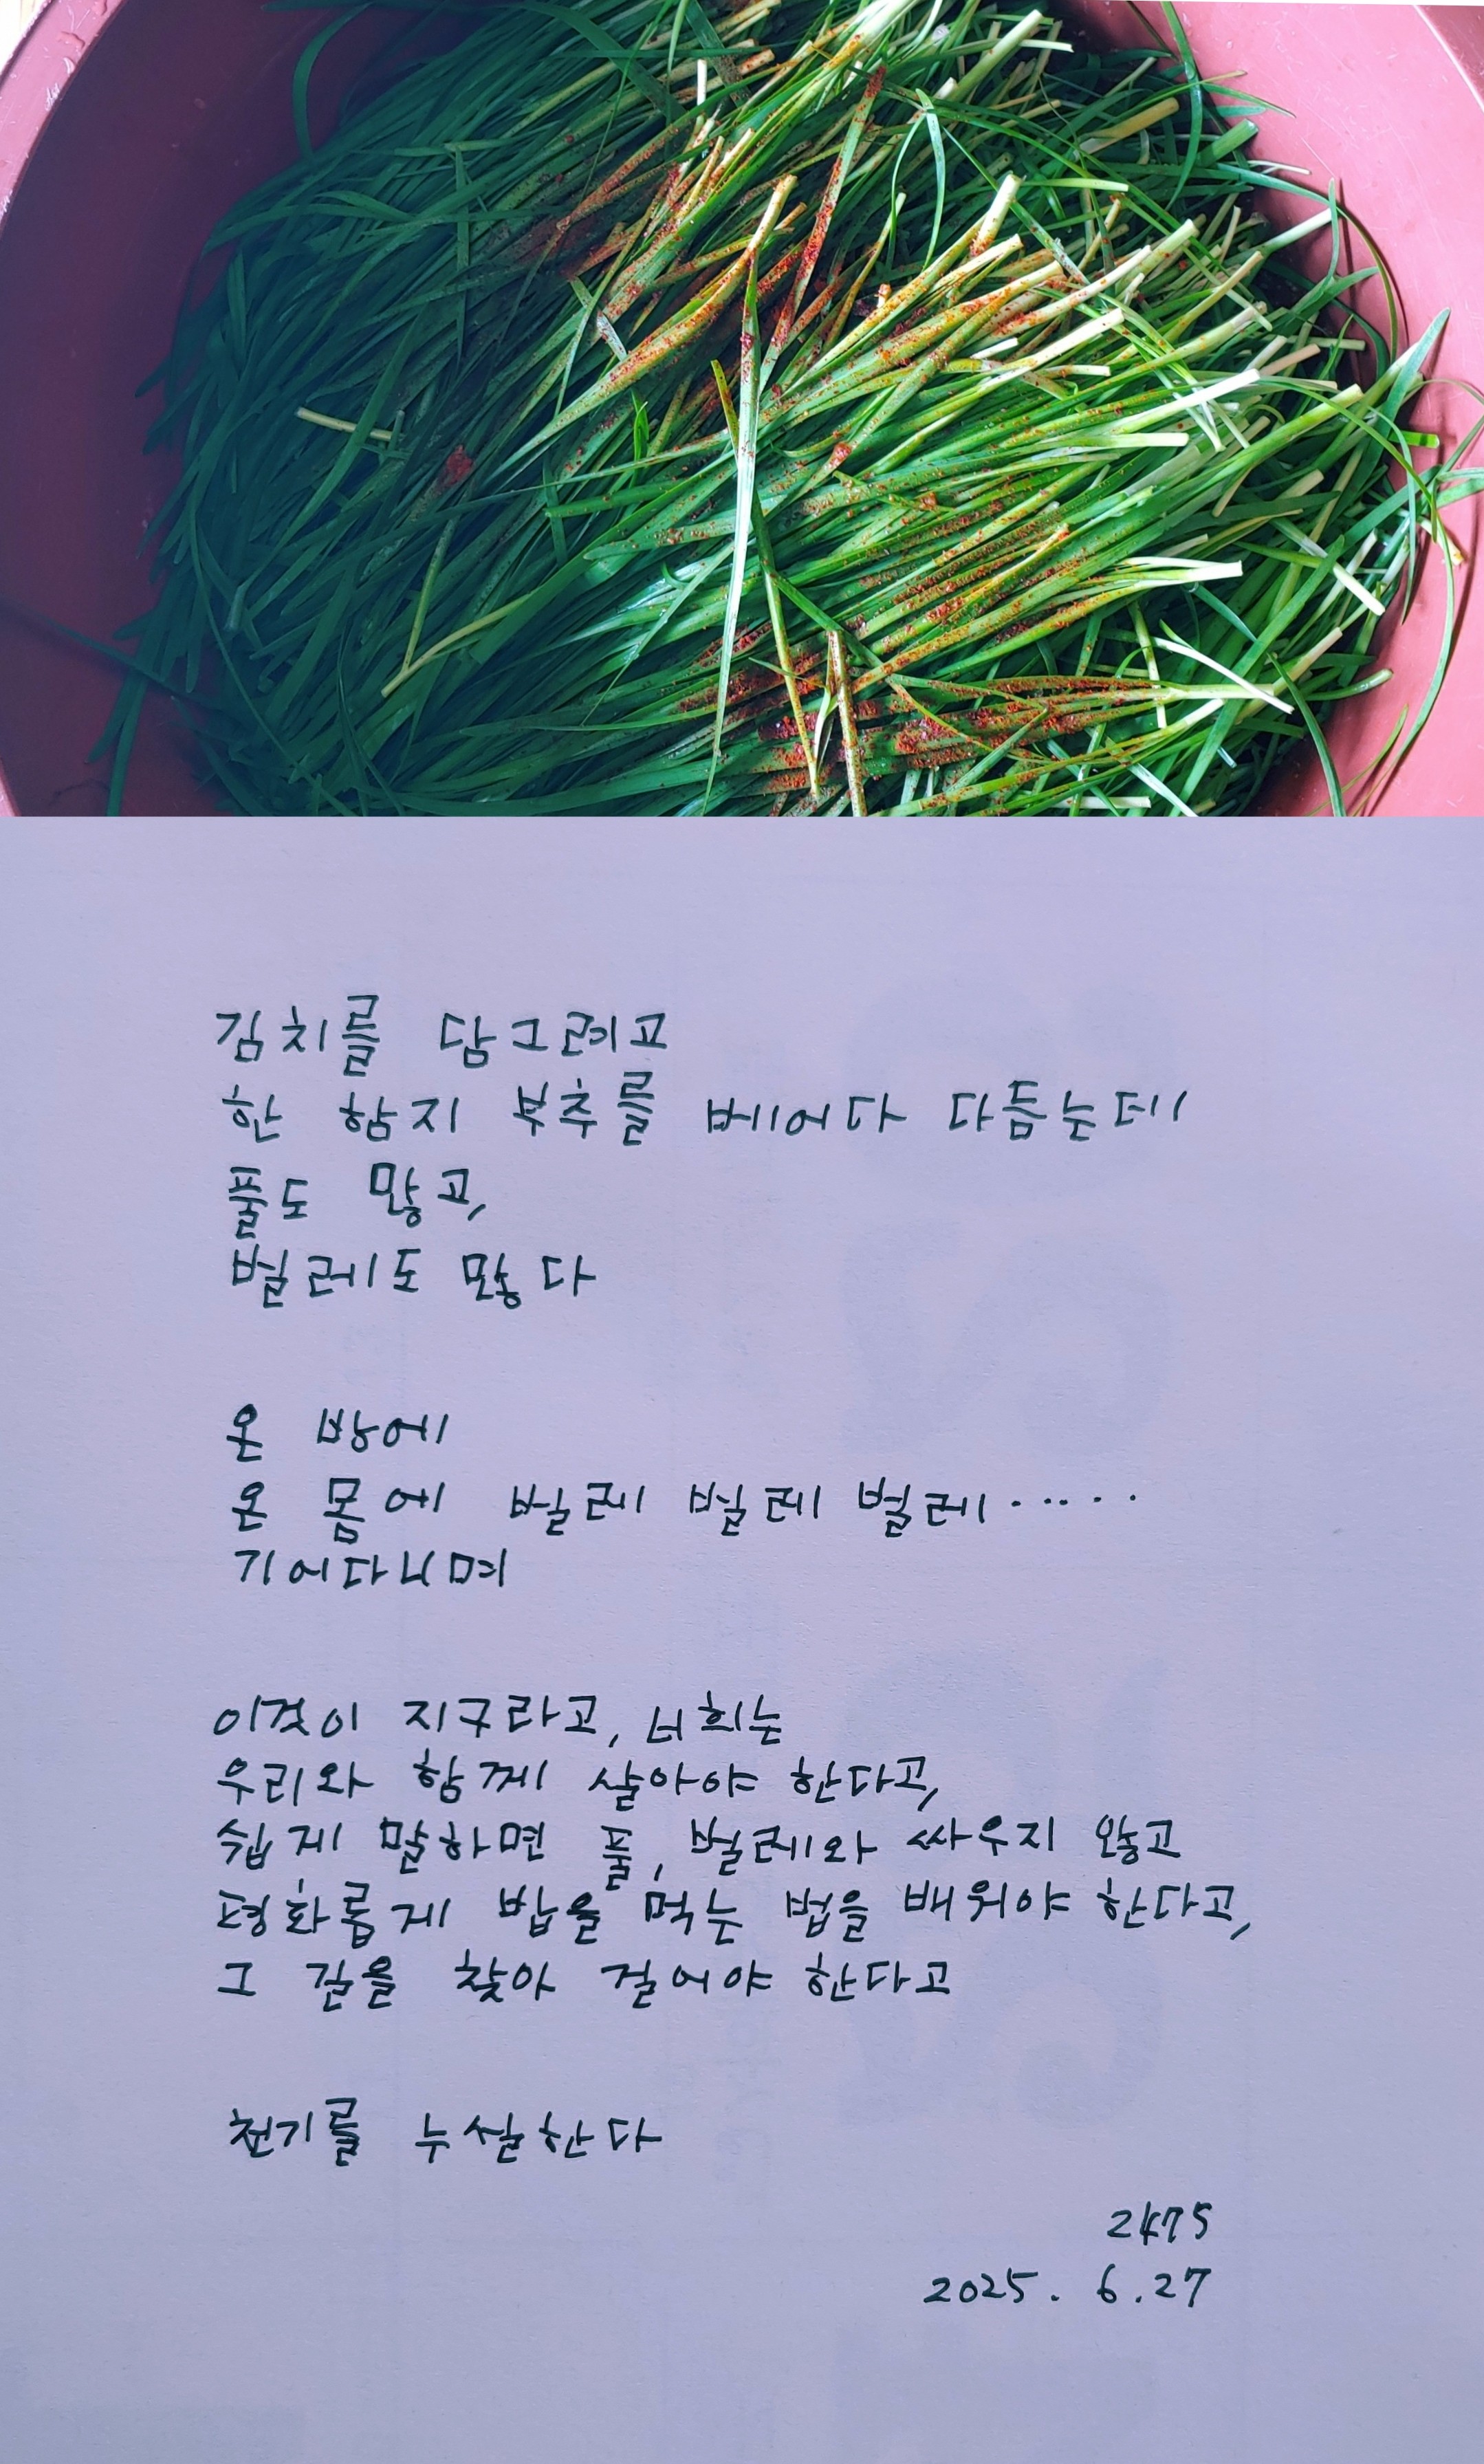 김치를 담그려고
한 함지 부추를 베어다 다듬는데
풀도 많고,
벌레도 많다
온 방에
온 몸에 벌레 벌레 벌레······
기어다니며
이것이 지구라고, 너희는
우리와 함께 살아야 한다고,
쉽게 말하면 풀, 벌레와 싸우지 않고
평화롭게 밥을 먹는 법을 배워야 한다고,
그 길을 찾아 걸어야 한다고
천기를 누설한다
2475
2025. 6.27